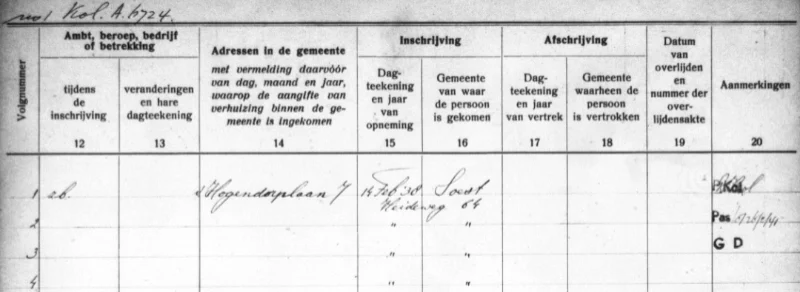 Kol. A. 6724.
Volgnummer
Ambt, beroep, bedrijf
of betrekking
tijdens
de
inschrijving
12
veranderingen
en hare
dagteekening
13
Adressen in de gemeente
met vermelding daarvóór
van dag, maand en jaar,
waarop de aangifte van
verhuizing binnen de ge-
meente is ingekomen
14
Inschrijving
Dag-
teekening
en jaar
van
opneming
15
Gemeente
van waar
de persoon
is gekomen
16
Afschrijving
Dag-
teekening
en jaar
van vertrek
17
Gemeente
waarheen de
persoon
is vertrokken
18
Datum
van
overlijden
en
nummer der
over-
lijdensakte
19
Aanmerkingen
20
1 zb. Hogendorplaan 7 Feb '38 Soest
Heideweg 64
2 " " Pas
3 " " G D
4 " "